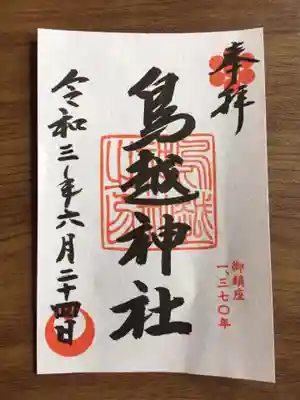 奉拝
鳥越神社
御鎮座
一、三七〇年
令和三年六月二十四日